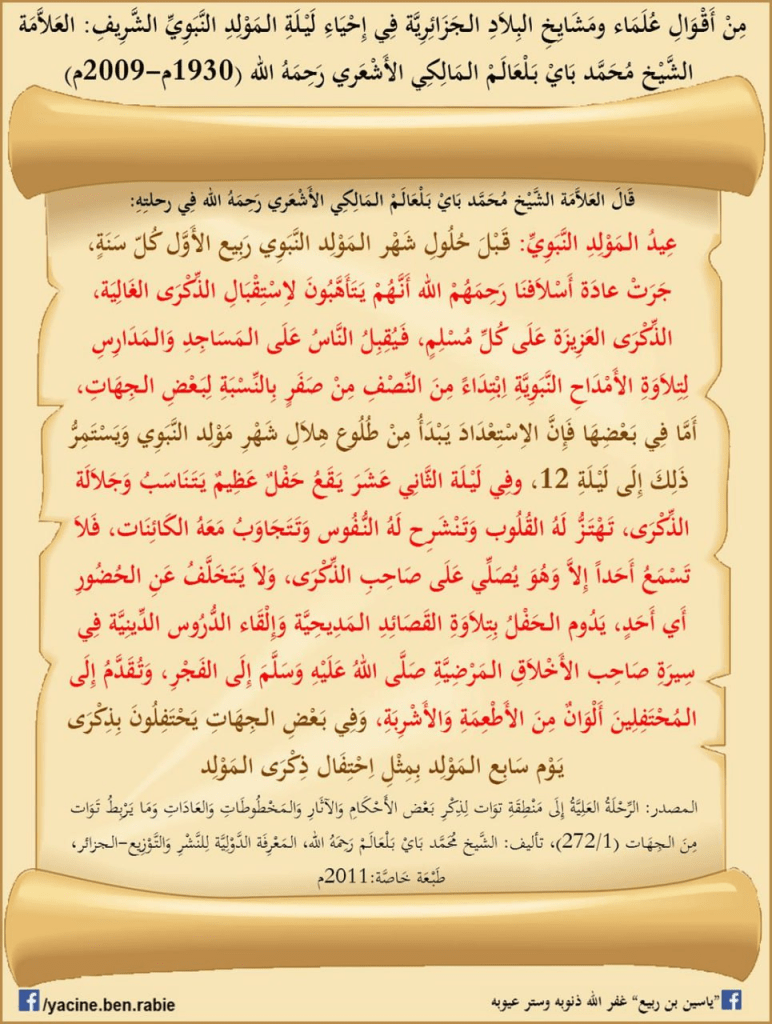 مِنْ أَقْوَالِ عُلَمَاء ومَشَايِخِ البِلاَدِ الجَزَائِرِيَّة فِي إِحْيَاءِ لَيْلَةِ المَوْلِدِ النَّبَوِيِّ الشَّرِيفِ: العَلاَّمَة
الشَّيْخ مُحَمَّد بَايْ بَلْعَالَمْ المَالِكِي الأَشْعَرِي رَحِمَهُ الله (1930م-2009م)
قَالَ العَلاَّمَة الشَّيْخ مُحَمَّد بَايْ بَلْعَالَمْ المَالِكِي الأَشْعَرِي رَحِمَهُ الله فِي رحلتِهِ:
عِيدُ المَوْلِدِ النَّبَوِيِّ: قَبْلَ حُلُولِ شَهْر المَوْلِد النَّبَوِي رَبِيع الأَوَّل كُلّ سَنَةٍ،
جَرَتْ عادَة أَسْلاَفنَا رَحِمَهُمْ الله أَنَّهُمْ يَتَأَهَّبُونَ لاِسْتِقْبَالِ الذِّكْرَى الغَالِيَة،
الذِّكْرَى العَزِيزَة عَلَى كُلِّ مُسْلِمٍ، فَيُقْبِلُ النَّاسُ عَلَى المَسَاجِدِ وَالمَدَارِسِ
لِتِلاَوَةِ الأَمْدَاحِ النَّبَوِيَّةِ اِبْتِدَاءً مِنَ النِّصْفِ مِنْ صَفَرٍ بِالنِّسْبَةِ لِبَعْضِ الجِهَاتِ،
أَمَّا فِي بَعْضِهَا فَإِنَّ الاِسْتِعْدَادَ يَبْدَأُ مِنْ طُلُوع هِلاَلِ شَهْرِ مَوْلِد النَّبَوِي وَيَسْتَمِرُّ
ذَلِكَ إِلَى لَيْلَةِ 12، وفِي لَيْلَة الثَّانِي عَشَرَ يَقَعُ حَفْلٌ عَظِيمٌ يَتَنَاسَبُ وَجَلاَلَة
الذِّكْرَى، تَهْتَزُّ لَهُ القُلُوب وَتَنْشَرِح لَهُ النُّفُوس وَتَتَجَاوَبُ مَعَهُ الكَائِنَات، فَلاَ
تَسْمَعُ أَحَداً إِلاَّ وَهُوَ يُصَلِّي عَلَى صَاحِبِ الذِّكْرَى، وَلاَ يَتَخَلَّفُ عَنِ الحُضُورِ
أَي أَحَدٍ، يَدُوم الحَفْلُ بِتِلاَوَةِ القَصَائِدِ المَدِيحِيَّة وَإِلْقَاء الدُّرُوس الدِّينِيَّة فِي
سِيرَةِ صَاحِب الأَخْلاَقِ المَرْضِيَّةِ صَلَّى اللهُ عَلَيْهِ وَسَلَّمَ إِلَى الفَجْرِ، وَتُقَدَّمُ إِلَى
المُحْتَفِلِينَ أَلْوَانٌ مِنَ الأَطْعِمَةِ وَالأَشْرِبَةِ، وَفِي بَعْضِ الجِهَاتِ يَحْتَفِلُونَ بِذِكْرَى
يَوْم سَابِع المَوْلِد بِمِثْلِ اِحْتِفَال ذِكْرَى المَوْلِد
المصدر: الرِّحْلَةُ العَلِيَّةُ إِلَى مَنْطِقَةِ توَات لِذِكْرِ بَعْض الأَحْكَامِ وَالآثَارِ وَالمَخْطُوطَاتِ وَالعَادَاتِ وَمَا يَرْبِطُ تَوَات
مِنَ الجِهَات (272/1)، تأليف: الشَّيخ مُحَمَّد بَايْ بَلْعَالَمْ رَحِمَهُ الله، المَعْرِفَة الدَّوْلِيَّة لِلنَّشْرِ وَالتَّوْزِيع-الجزائر،
طَبْعَة خَاصَّة:2011م
/yacine.ben.rabie
"ياسين بن ربيع" غفر الله ذنوبه وستر عيوبه